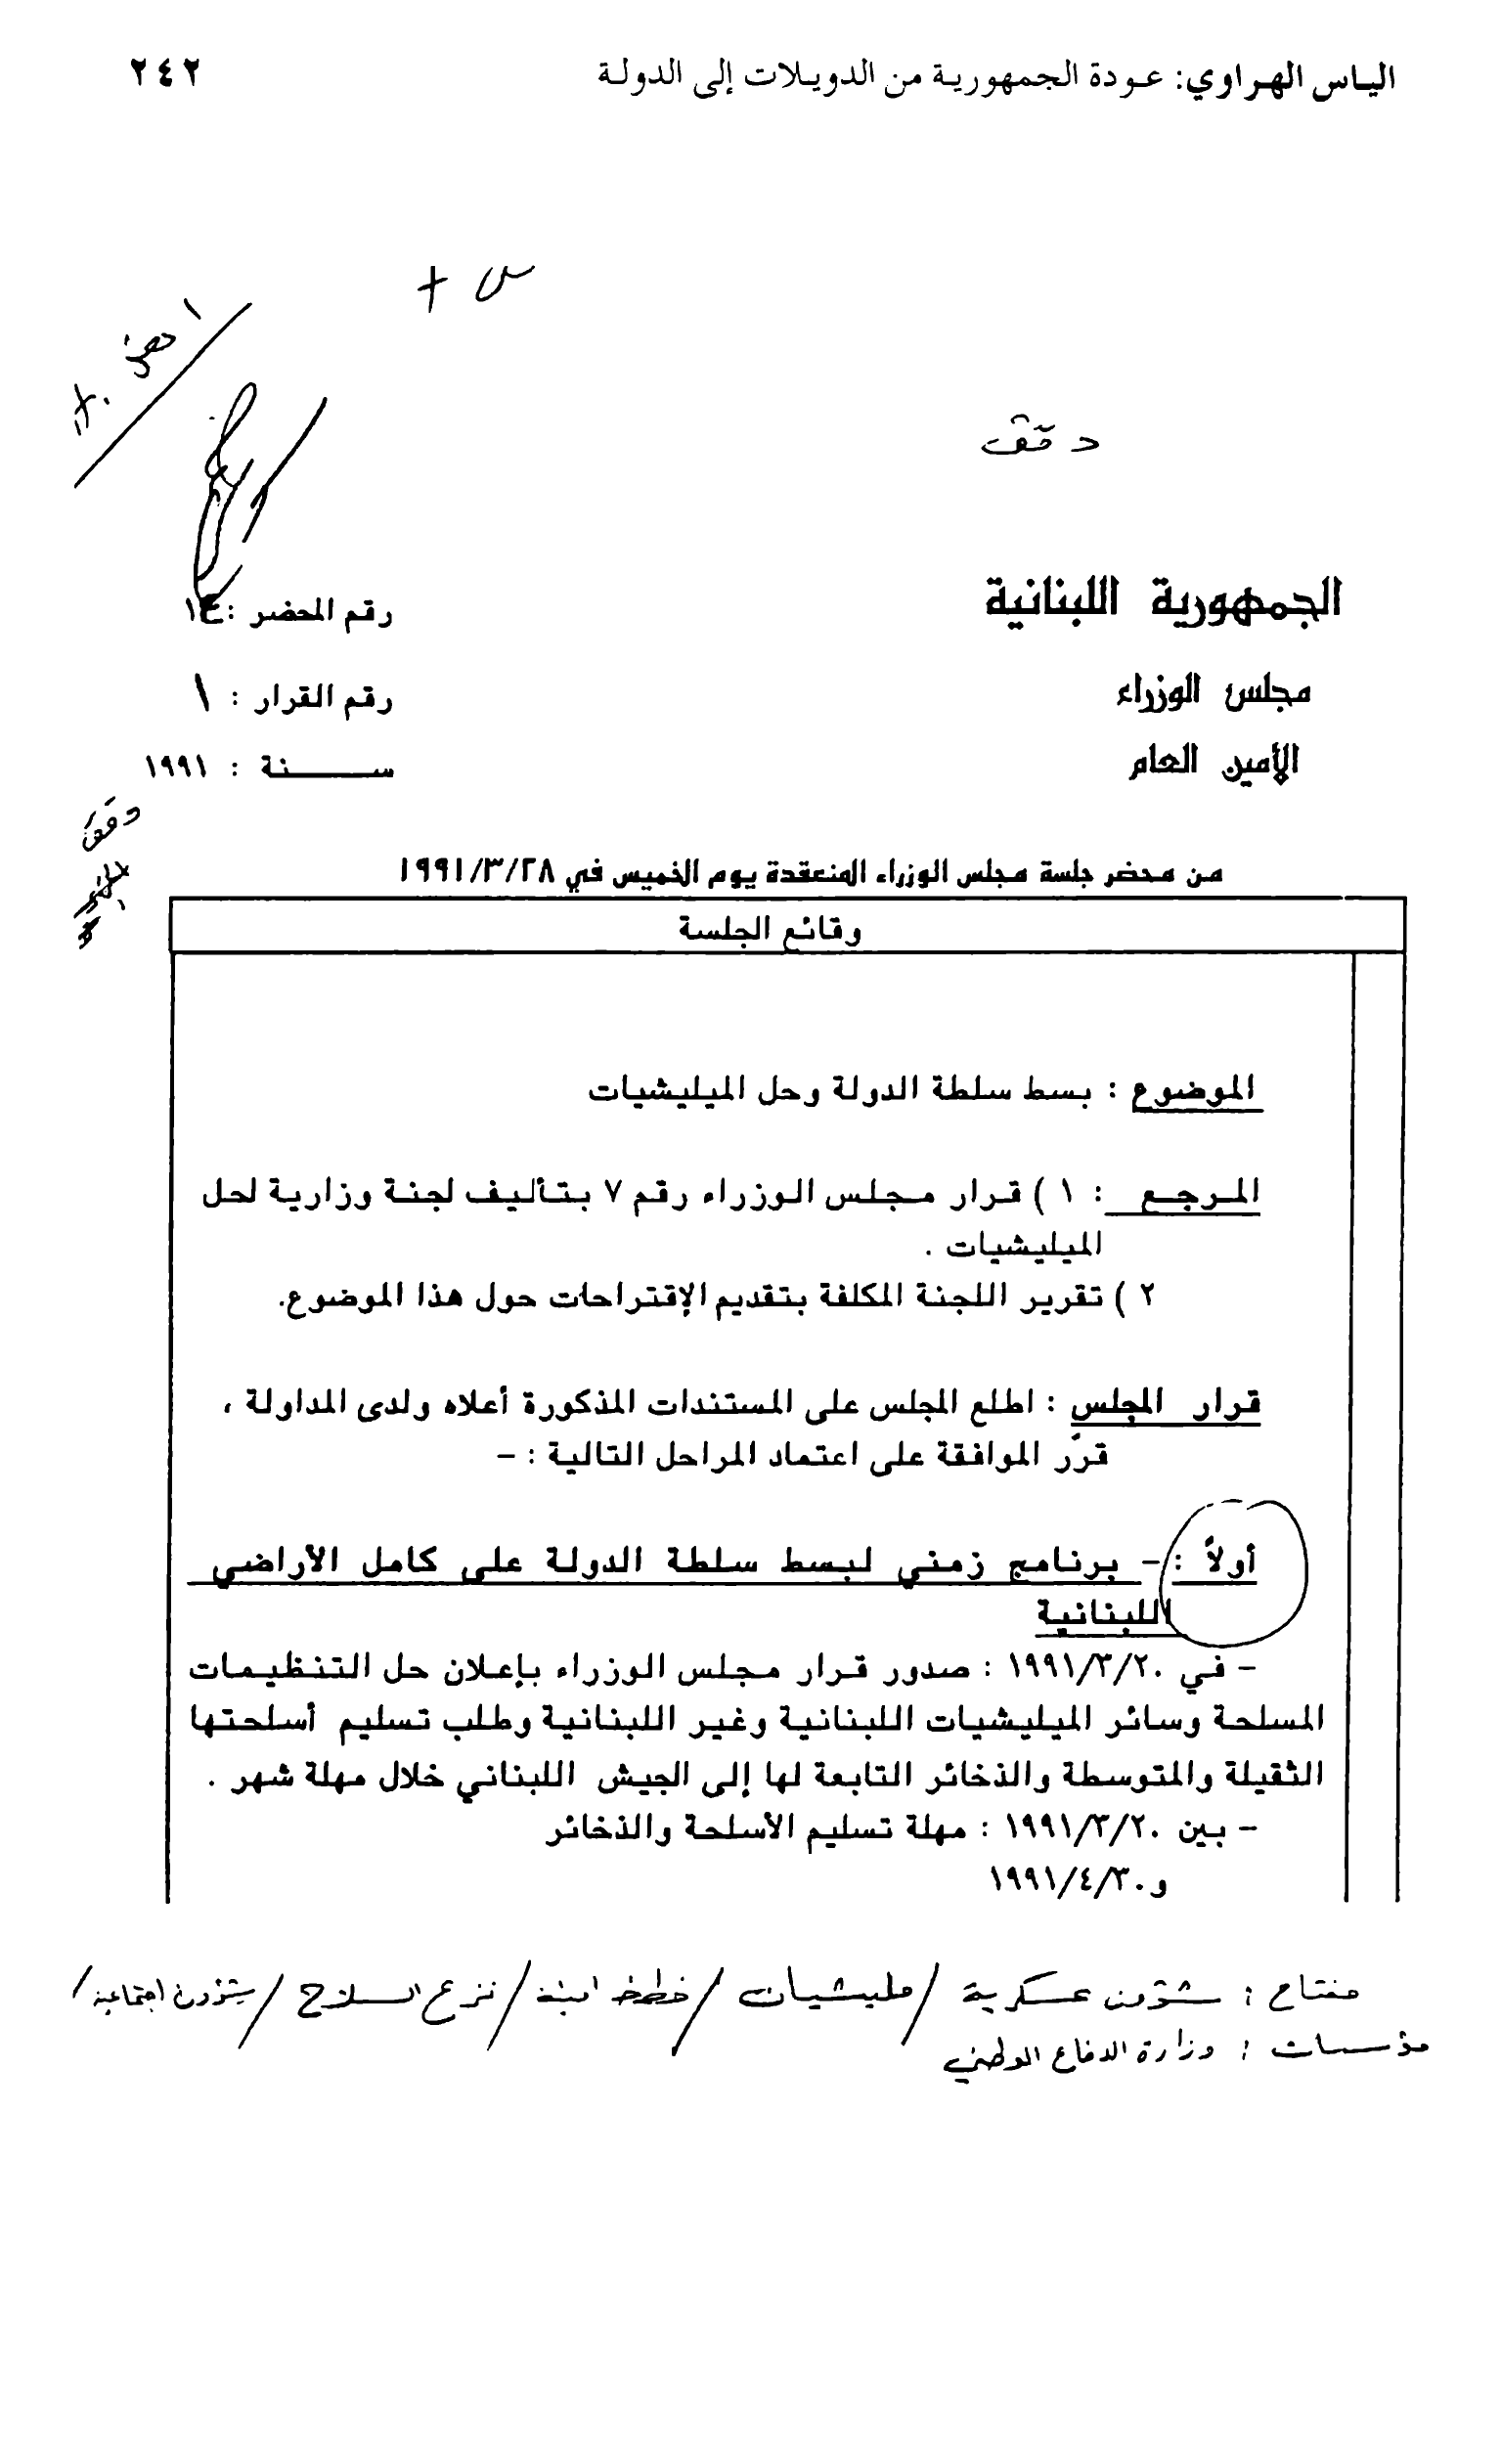 الياس الهراوي: عودة الجمهورية من الدويلات إلى الدولة ٢٤٢
س +
دقق
الجمهورية اللبنانية
رقم المحضر : ١٤
مجلس الوزراء
رقم القرار : ١
الأمين العام
سـنة : ١٩٩١
دقق
من محضر جلسة مجلس الوزراء المنعقدة يوم الخميس في ١٩٩١/٣/٢٨
وقائع الجلسة
الموضوع : بسط سلطة الدولة وحل الميليشيات
المرجع : ١ ) قرار مجلس الوزراء رقم ٧ بتأليف لجنة وزارية لحل
الميليشيات .
٢ ) تقرير اللجنة المكلفة بتقديم الإقتراحات حول هذا الموضوع.
قرار المجلس : اطلع المجلس على المستندات المذكورة أعلاه ولدى المداولة ،
قرّر الموافقة على اعتماد المراحل التالية : –
أولاً : – برنامج زمني لبسط سلطة الدولة على كامل الأراضي
اللبنانية
– في ١٩٩١/٣/٢٠ : صدور قرار مجلس الوزراء بإعلان حل التنظيمات
المسلحة وسائر الميليشيات اللبنانية وغير اللبنانية وطلب تسليم أسلحتها
الثقيلة والمتوسطة والذخائر التابعة لها إلى الجيش اللبناني خلال مهلة شهر .
– بين ١٩٩١/٣/٢٠ : مهلة تسليم الأسلحة والذخائر
و١٩٩١/٤/٣٠
مفتاح : شؤون عسكرية / مليشيات / خطط امنية / نزع السلاح / شؤون اجتماعية /
مؤسسات : وزارة الدفاع الوطني